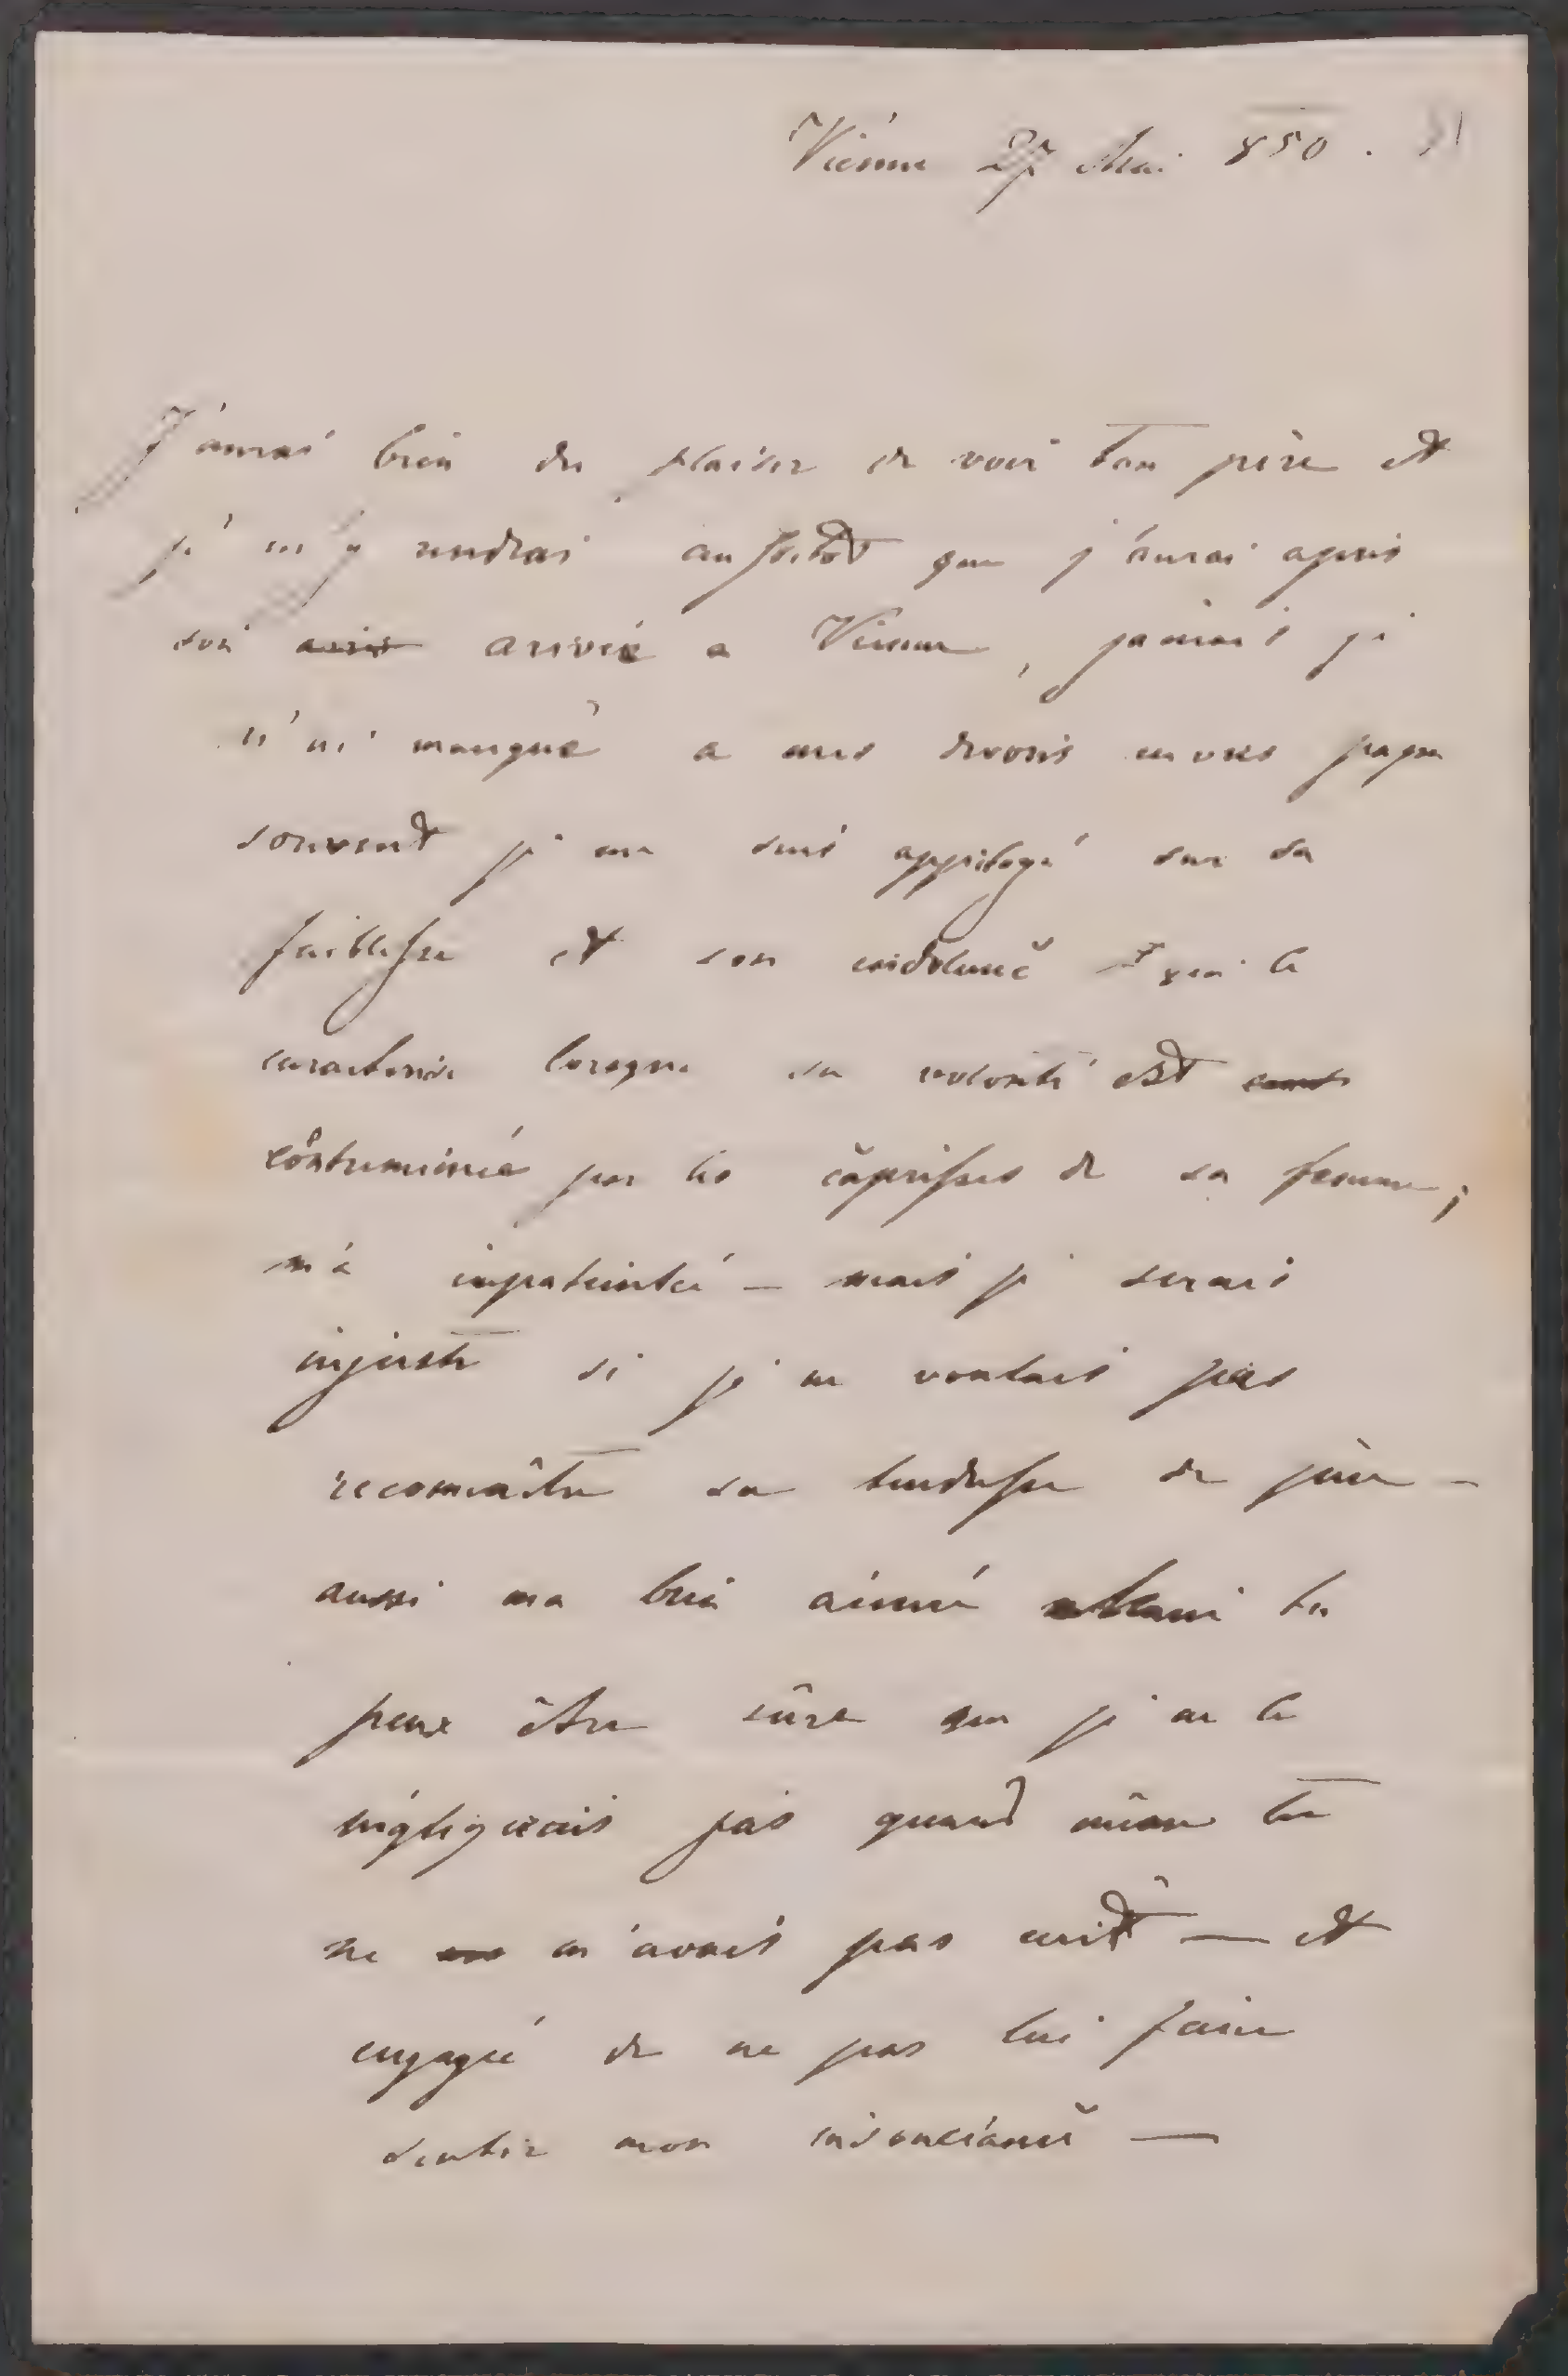 Vienne 27 Mai 850.
J'aurai bien du plaisir de voir ton père et
je m'y rendrai aussitôt que j'aurai apris
son arivée a Vienne, jamais je
n'ai manqué a mes devoirs envers papa
souvent je me suis sur sa
faiblesse et son indolence qui le
caracterise lorsque sa volonté est
par les caprisses de sa femme,
m'a impatientée — mais je serais
injuste si je ne voulais pas
reconnaître sa tendresse de père —
aussi ma bien aimée tu
peux être sûre que je ne le
négligerais pas quand même tu
ne m'avais pas écrit — et
engagée de ne pas lui faire
sentir mon insouciance —